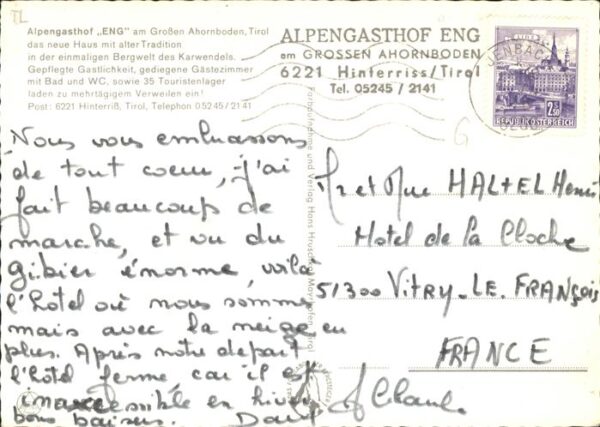 TL
Alpengasthof „ENG" am Großen Ahornboden, Tirol
das neue Haus mit alter Tradition
in der einmaligen Bergwelt des Karwendels.
Gepflegte Gastlichkeit, gediegene Gästezimmer
mit Bad und WC, sowie 35 Touristenlager
laden zu mehrtägigem Verweilen ein!
Post: 6221 Hinterriß, Tirol, Telephon 05245/2141
ALPENGASTHOF ENG
am GROSSEN AHORNBODEN
6221 Hinterriss/Tirol
Tel. 05245 / 2141
JENBACH
2.50
REPUBLIK ÖSTERREICH
G
Nous vous embrassons
de tout coeur, j'ai
fait beaucoup de
marche, et vu du
gibier énorme, voilà
l'hotel où nous sommes
mais avec la neige en
plus. Après notre depart
l'hotel ferme car il est
inaccessible en hiver
bons baisers.
Farbaufnahme und Verlag Hans Hruschka, Mayrhofen, Tirol
Mr et Mme HALTEL Henri
Hotel de la Cloche
51300 VITRY-LE-FRANÇOIS
FRANCE